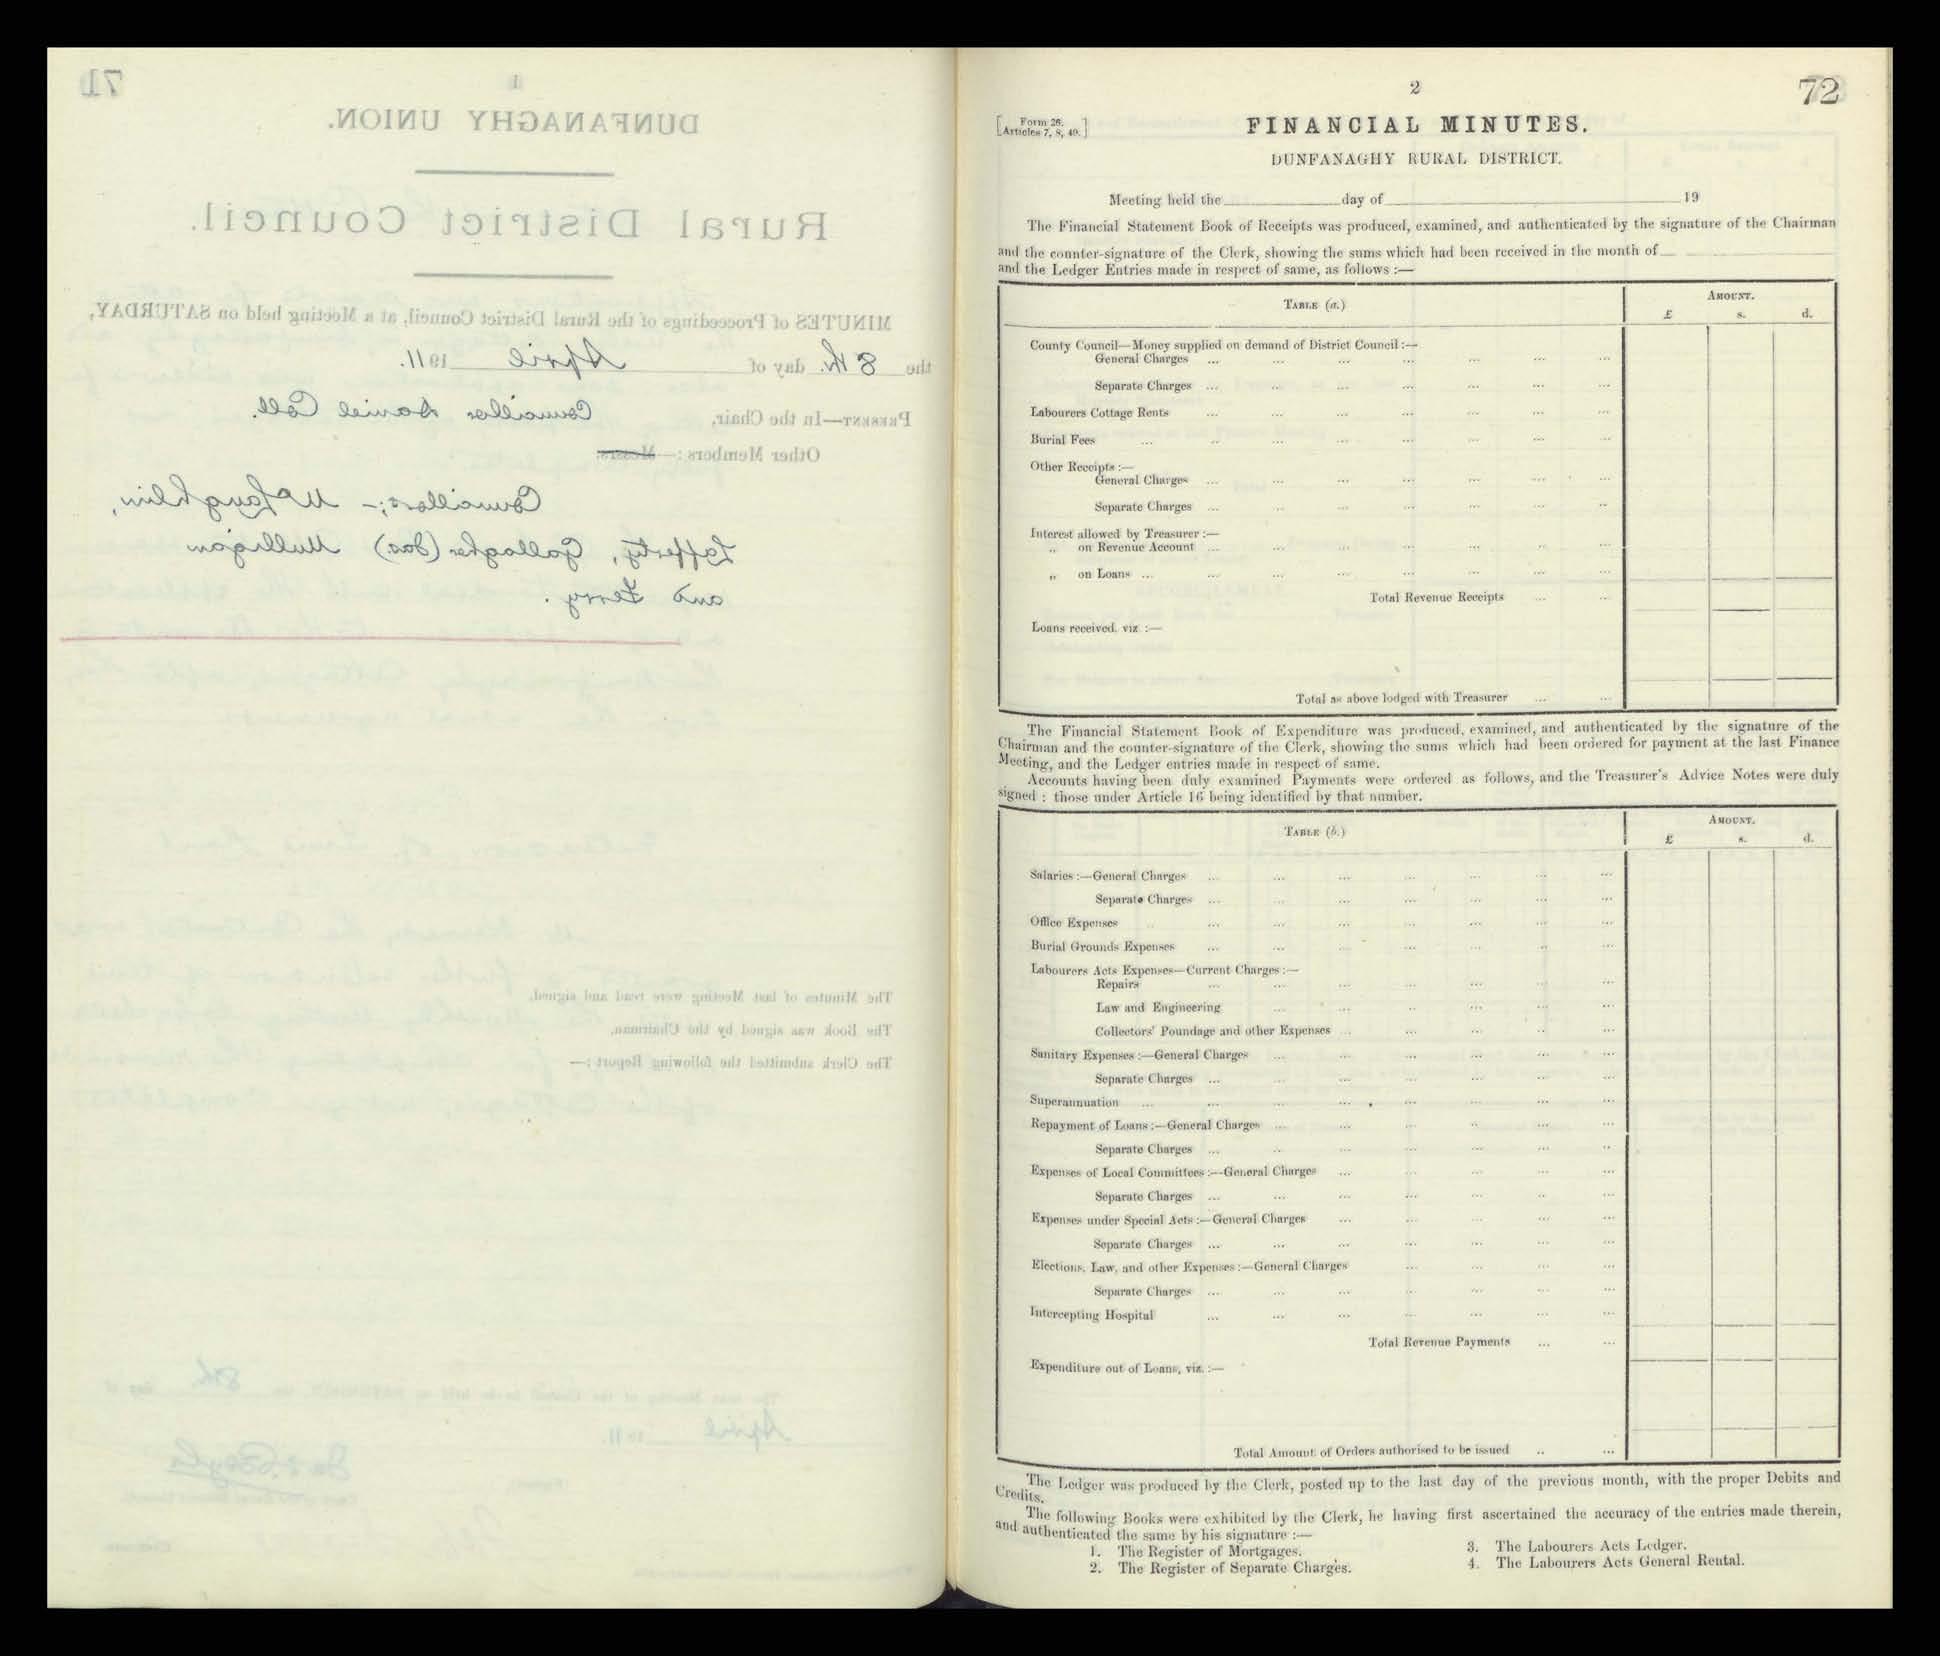 71
1
DUNFANAGHY UNION.
Rural District Council.
MINUTES of Proceedings of the Rural District Council, at a Meeting held on SATURDAY,
the 8th. day of April 1911.
PRESENT—In the Chair, Councillor Daniel Coll.
Other Members :— Messrs.
Councillors;- McLaughlin,
Lafferty, Gallagher (Jas) Mulligan
and Ferry.
The Minutes of last Meeting were read and signed.
The Book was signed by the Chairman.
The Clerk submitted the following Report :—
8th
April 1911.
72
2
[Form 26. Articles 7, 8, 49.]
FINANCIAL MINUTES.
DUNFANAGHY RURAL DISTRICT.
Meeting held the day of 19
The Financial Statement Book of Receipts was produced, examined, and authenticated by the signature of the Chairman
and the counter-signature of the Clerk, showing the sums which had been received in the month of
and the Ledger Entries made in respect of same, as follows :—
TABLE (a.) AMOUNT.
£ s. d.
County Council—Money supplied on demand of District Council :—
General Charges ... ... ... ... ... ... ...
Separate Charges ... ... ... ... ... ... ...
Labourers Cottage Rents ... ... ... ... ... ... ...
Burial Fees ... ... ... ... ... ... ... ...
Other Receipts :—
General Charges ... ... ... ... ... ... ...
Separate Charges ... ... ... ... ... ... ...
Interest allowed by Treasurer :—
„ on Revenue Account ... ... ... ... ... ... ...
„ on Loans ... ... ... ... ... ... ... ...
Total Revenue Receipts ... ...
Loans received, viz :—
Total as above lodged with Treasurer ... ...
The Financial Statement Book of Expenditure was produced, examined, and authenticated by the signature of the
Chairman and the counter-signature of the Clerk, showing the sums which had been ordered for payment at the last Finance
Meeting, and the Ledger entries made in respect of same.
Accounts having been duly examined Payments were ordered as follows, and the Treasurer's Advice Notes were duly
signed : those under Article 16 being identified by that number.
TABLE (b.) AMOUNT.
£ s. d.
Salaries :—General Charges ... ... ... ... ... ... ...
Separate Charges ... ... ... ... ... ... ...
Office Expenses ... ... ... ... ... ... ... ...
Burial Grounds Expenses ... ... ... ... ... ... ...
Labourers Acts Expenses—Current Charges :—
Repairs ... ... ... ... ... ... ...
Law and Engineering ... ... ... ... ... ...
Collectors' Poundage and other Expenses ... ... ... ... ...
Sanitary Expenses :—General Charges ... ... ... ... ... ...
Separate Charges ... ... ... ... ... ... ...
Superannuation ... ... ... ... ... ... ... ...
Repayment of Loans :—General Charges ... ... ... ... ... ...
Separate Charges ... ... ... ... ... ... ...
Expenses of Local Committees :—General Charges ... ... ... ... ...
Separate Charges ... ... ... ... ... ... ...
Expenses under Special Acts :—General Charges ... ... ... ... ...
Separate Charges ... ... ... ... ... ... ...
Elections, Law, and other Expenses :—General Charges ... ... ... ...
Separate Charges ... ... ... ... ... ... ...
Intercepting Hospital ... ... ... ... ... ... ...
Total Revenue Payments ... ...
Expenditure out of Loans, viz. :—
Total Amount of Orders authorised to be issued ... ...
The Ledger was produced by the Clerk, posted up to the last day of the previous month, with the proper Debits and
Credits.
The following Books were exhibited by the Clerk, he having first ascertained the accuracy of the entries made therein,
and authenticated the same by his signature :—
1. The Register of Mortgages.
2. The Register of Separate Charges.
3. The Labourers Acts Ledger.
4. The Labourers Acts General Rental.